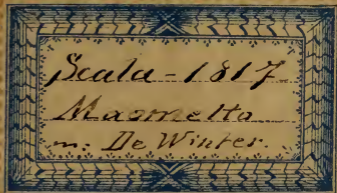 Scala - 1817
Maometto
m: De Winter.